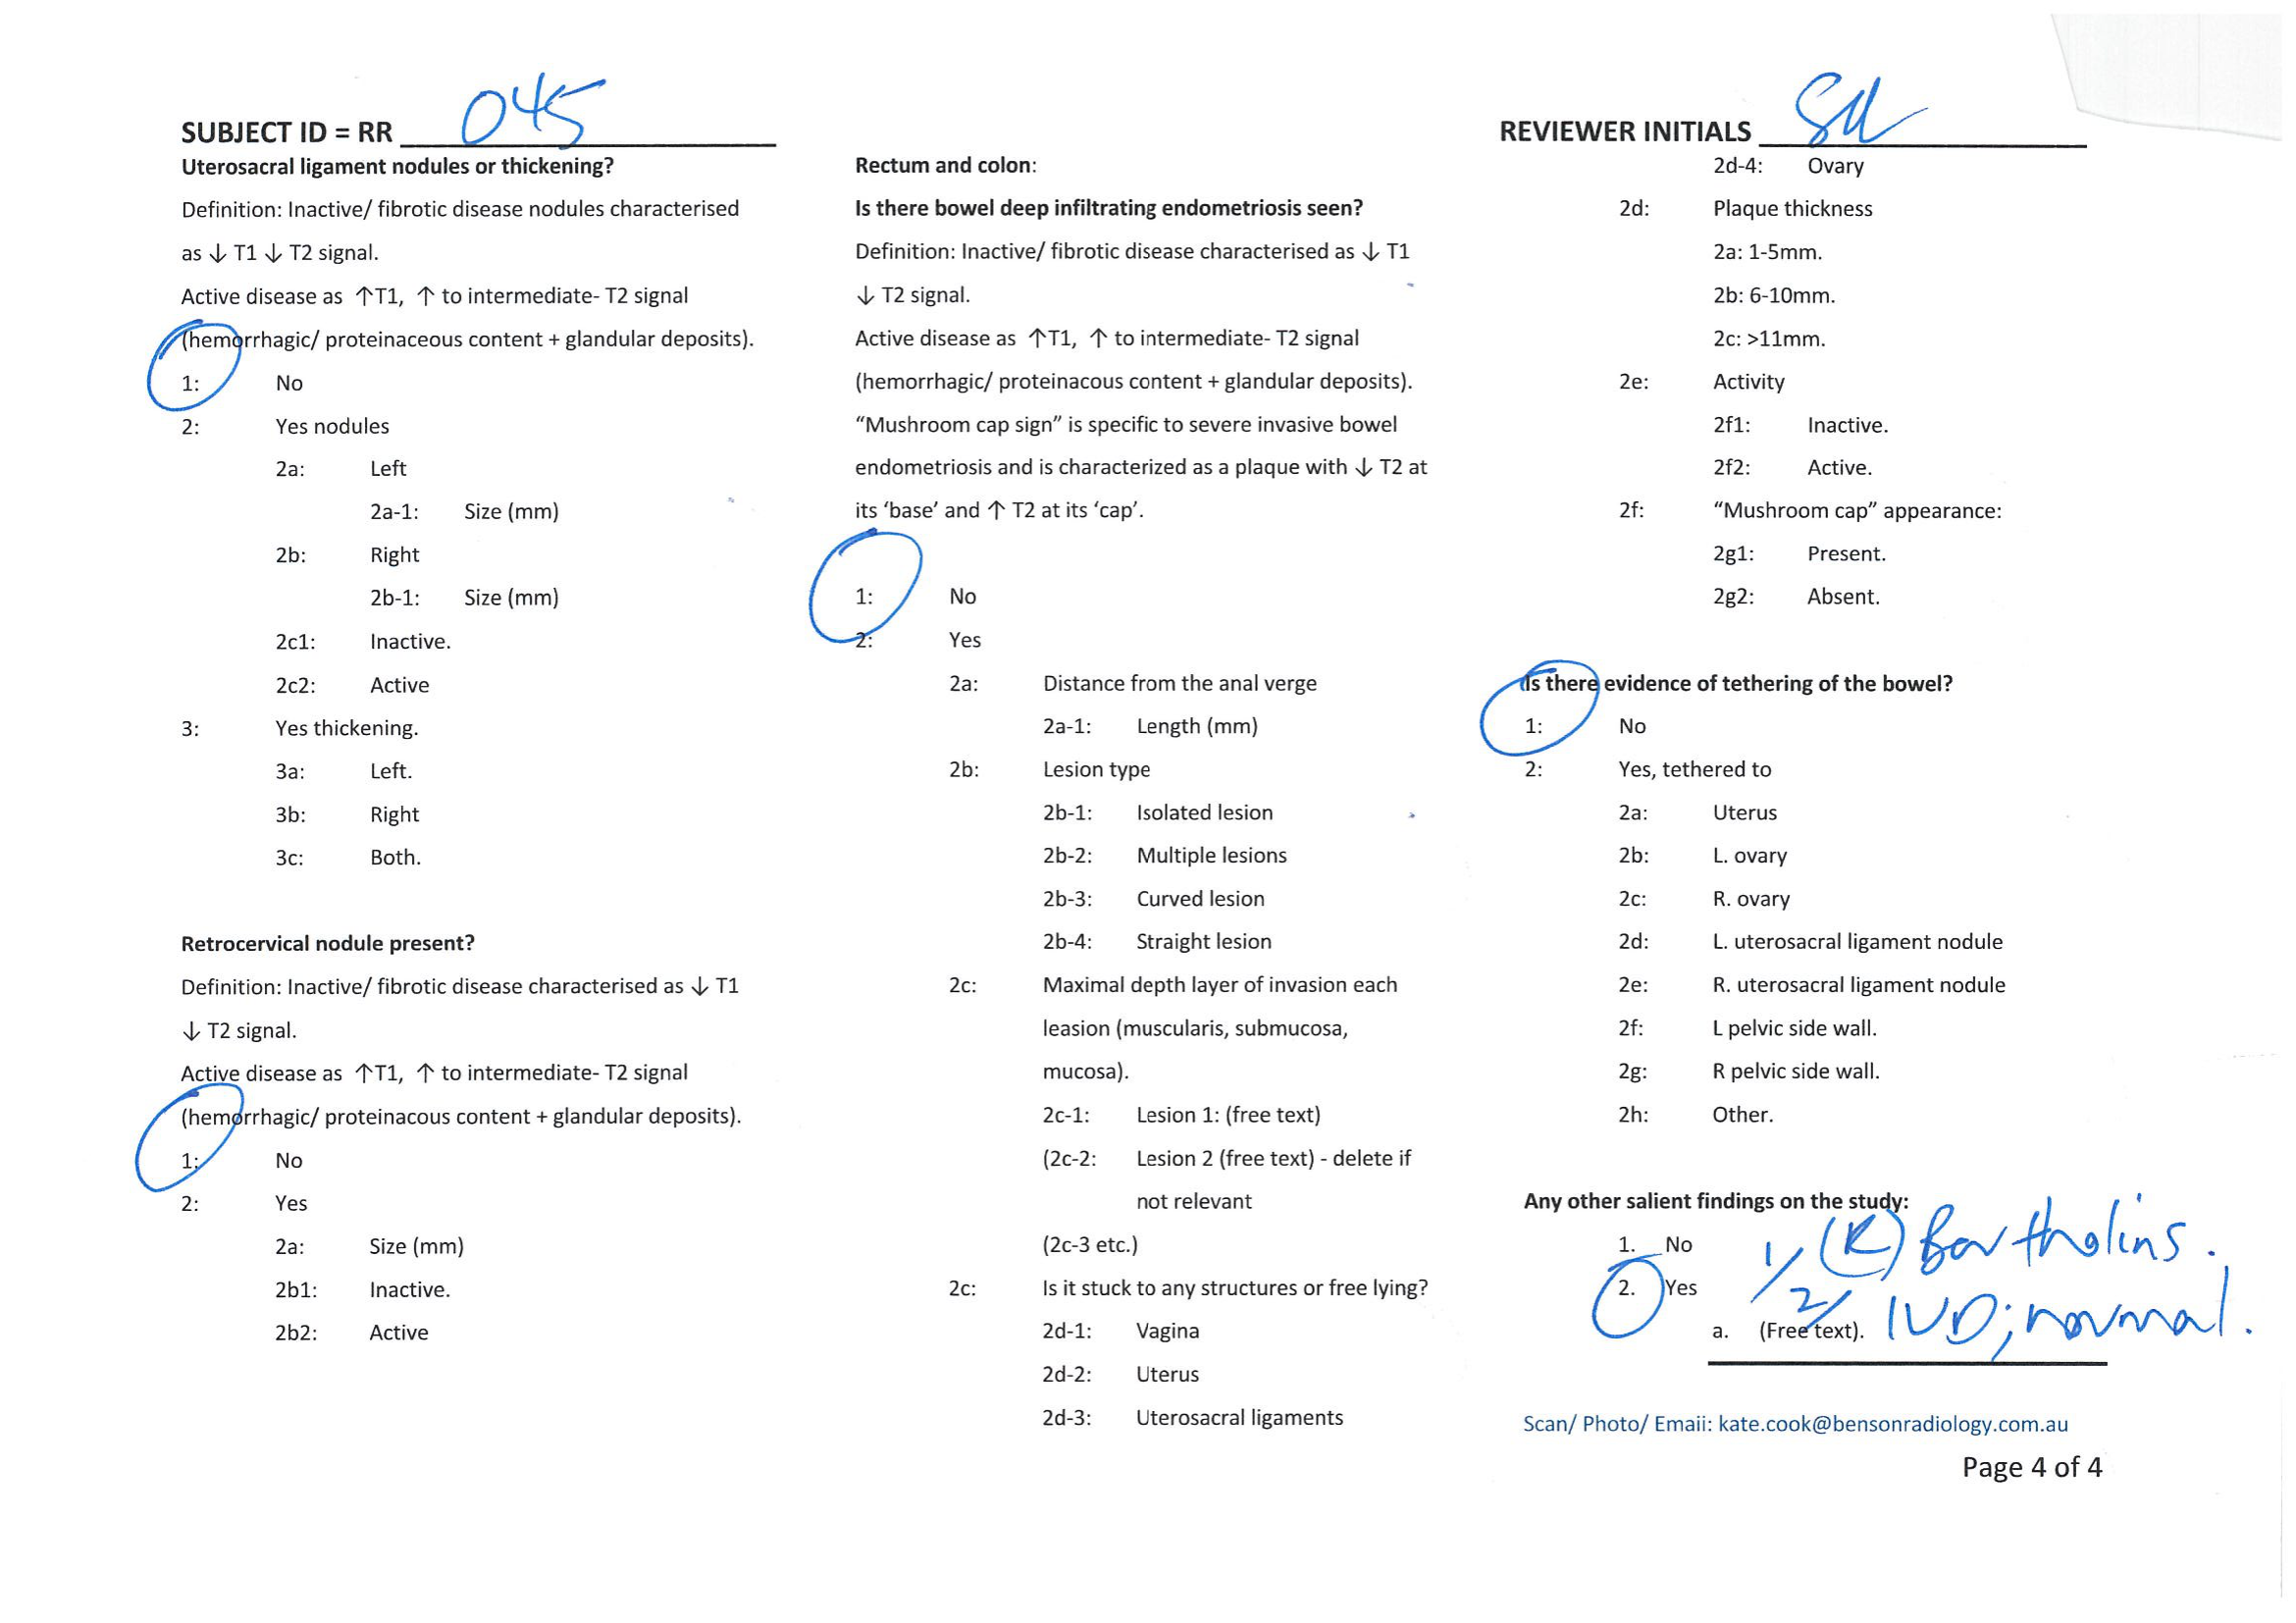 SUBJECT ID = RR 045
Uterosacral ligament nodules or thickening?
Definition: Inactive/ fibrotic disease nodules characterised
as ↓ T1 ↓ T2 signal.
Active disease as ↑T1, ↑ to intermediate- T2 signal
(hemorrhagic/ proteinaceous content + glandular deposits).
1: No
2: Yes nodules
2a: Left
2a-1: Size (mm)
2b: Right
2b-1: Size (mm)
2c1: Inactive.
2c2: Active
3: Yes thickening.
3a: Left.
3b: Right
3c: Both.
Retrocervical nodule present?
Definition: Inactive/ fibrotic disease characterised as ↓ T1
↓ T2 signal.
Active disease as ↑T1, ↑ to intermediate- T2 signal
(hemorrhagic/ proteinacous content + glandular deposits).
1: No
2: Yes
2a: Size (mm)
2b1: Inactive.
2b2: Active
Rectum and colon:
Is there bowel deep infiltrating endometriosis seen?
Definition: Inactive/ fibrotic disease characterised as ↓ T1
↓ T2 signal.
Active disease as ↑T1, ↑ to intermediate- T2 signal
(hemorrhagic/ proteinacous content + glandular deposits).
“Mushroom cap sign” is specific to severe invasive bowel
endometriosis and is characterized as a plaque with ↓ T2 at
its ‘base’ and ↑ T2 at its ‘cap’.
1: No
2: Yes
2a: Distance from the anal verge
2a-1: Length (mm)
2b: Lesion type
2b-1: Isolated lesion
2b-2: Multiple lesions
2b-3: Curved lesion
2b-4: Straight lesion
2c: Maximal depth layer of invasion each
leasion (muscularis, submucosa,
mucosa).
2c-1: Lesion 1: (free text)
(2c-2: Lesion 2 (free text) - delete if
not relevant
(2c-3 etc.)
2c: Is it stuck to any structures or free lying?
2d-1: Vagina
2d-2: Uterus
2d-3: Uterosacral ligaments
REVIEWER INITIALS
2d-4: Ovary
2d: Plaque thickness
2a: 1-5mm.
2b: 6-10mm.
2c: >11mm.
2e: Activity
2f1: Inactive.
2f2: Active.
2f: “Mushroom cap” appearance:
2g1: Present.
2g2: Absent.
Is there evidence of tethering of the bowel?
1: No
2: Yes, tethered to
2a: Uterus
2b: L. ovary
2c: R. ovary
2d: L. uterosacral ligament nodule
2e: R. uterosacral ligament nodule
2f: L pelvic side wall.
2g: R pelvic side wall.
2h: Other.
Any other salient findings on the study:
1. No
1/ (R) Bartholins.
2. Yes
a. (Free text).
2/ IUD; normal.
Scan/ Photo/ Email: kate.cook@bensonradiology.com.au
Page 4 of 4